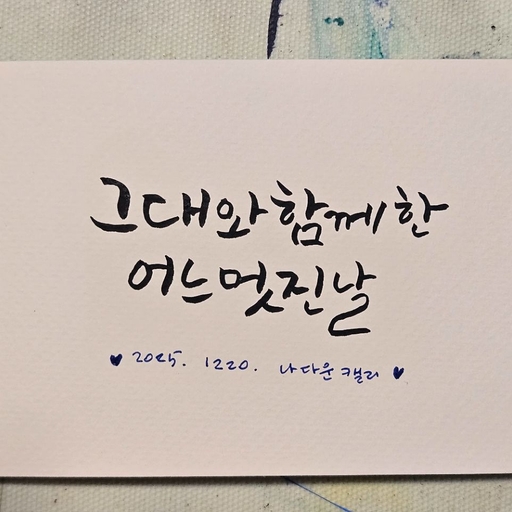 그대와 함께한
어느 멋진 날
♥ 2025. 1220. 나다운캘리 ♥